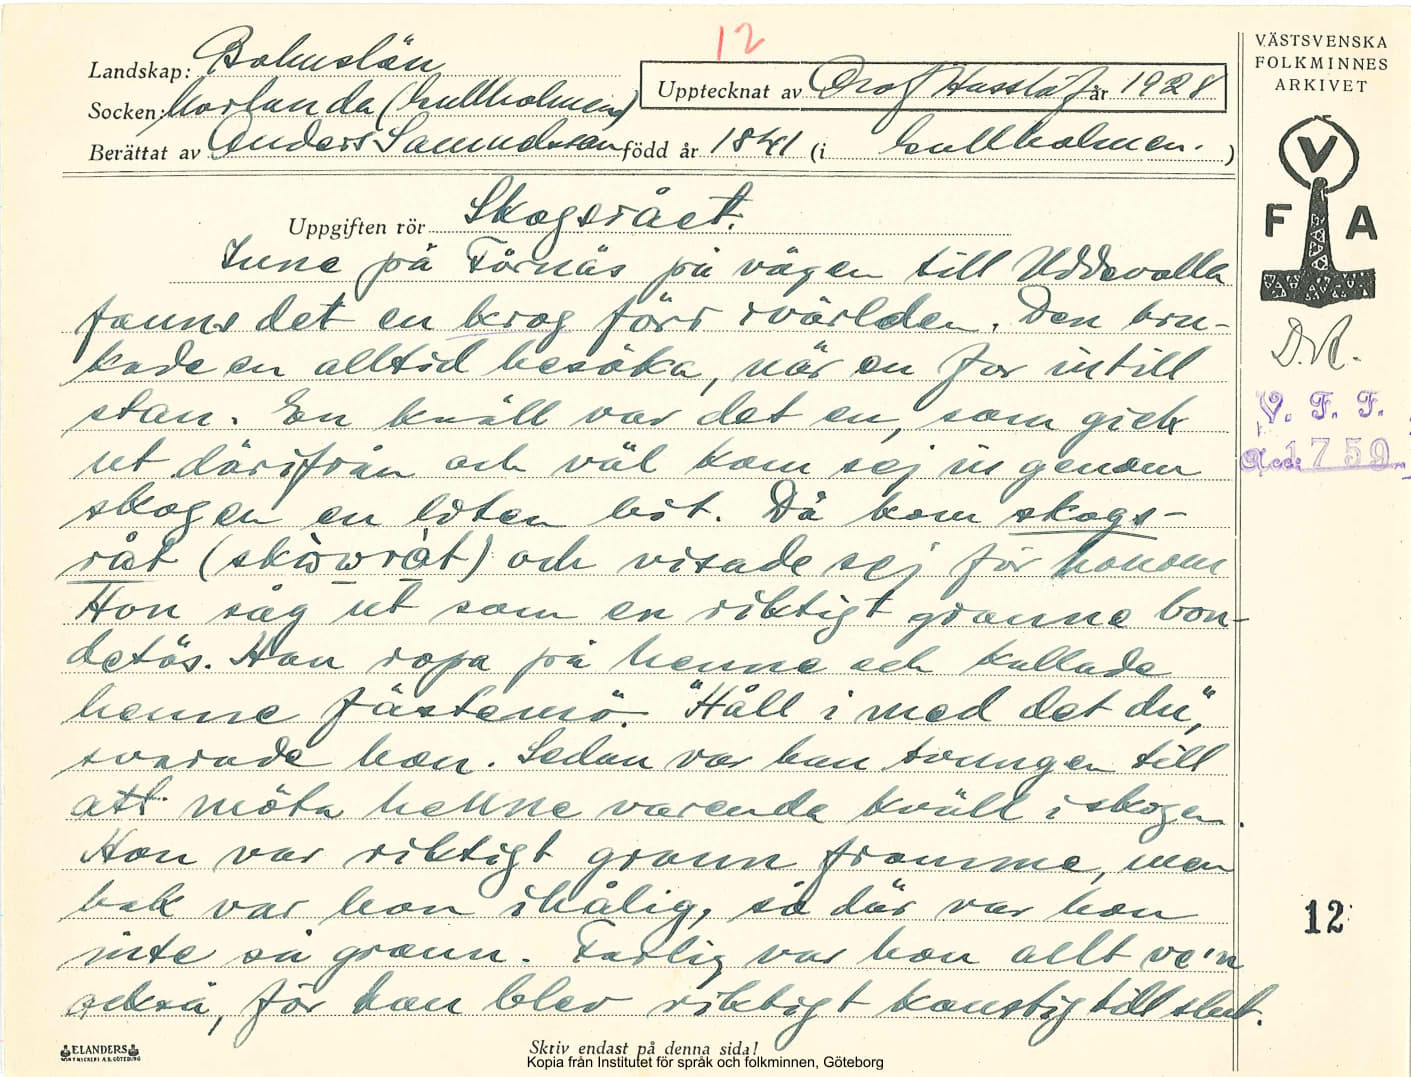 12
Landskap: Bohuslän
Upptecknat av Olof Hasslöf år 1928
Socken: Morlanda (Gullholmen)
Berättat av Anders Samuelsson född år 1841 (i Gullholmen.)
Uppgiften rör Skogsrået.
Inne på Förnäs på vägen till Uddevalla
fanns det en krog förr ivärlden. Den bru-
kade en alltid besöka, när en for intill
stan. En kväll var det en, som gick
ut därifrån och väl kom sej in genom
skogen en liten bit. Då kom skogs-
råt (skòwråt) och visade sej för honom
Hon såg ut som en riktigt granne bon-
detös. Han ropa på henne och kallade
henne fästemö. "Håll i med det du",
svarade hon. Sedan var han tvungen till
att möta henne varenda kväll i skogen.
Hon var riktigt grann framme, men
bak var hon ihålig, så där var hon
inte så grann. Farlig var hon allt ve'n
också, för han blev riktigt konstig till slut.
ELANDERS
Skriv endast på denna sida!
Kopia från Institutet för språk och folkminnen, Göteborg
VÄSTSVENSKA
FOLKMINNES
ARKIVET
V
F A
V. F. F.
Acc: 1759
12